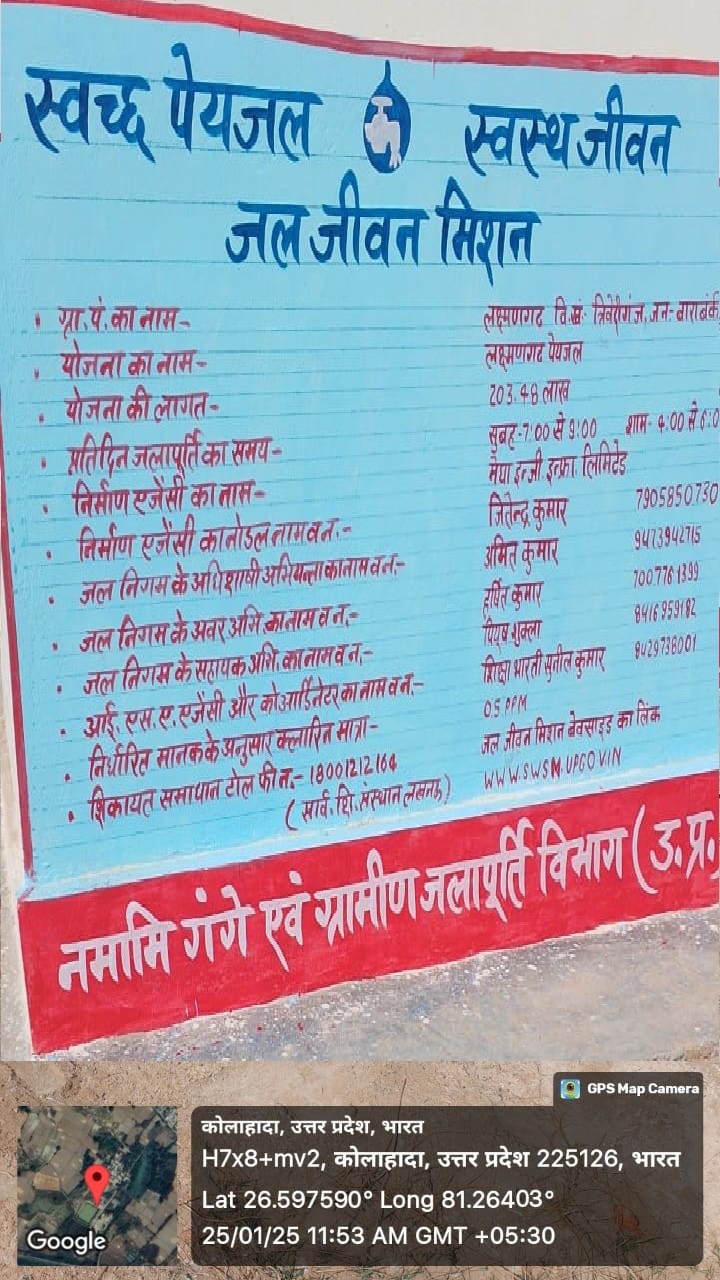 स्वच्छ पेयजल स्वस्थ जीवन
जल जीवन मिशन
ग्रा.पं. का नाम- लक्ष्मणगढ वि.ख. त्रिवेदीगंज, जन- बाराबंकी
योजना का नाम- लक्ष्मणगढ पेयजल
योजना की लागत- 203.48 लाख
प्रतिदिन जलापूर्ति का समय- सुबह-7:00 से 9:00 शाम- 4:00 से 6:0
निर्माण एजेंसी का नाम- मैया इन्जी. इन्फ्रा. लिमिटेड
निर्माण एजेंसी का नोडल नाम व न.- जितेन्द्र कुमार 7905850730
जल निगम के अधिशाषी अभियन्ता का नाम व न.- अमित कुमार 9473942715
जल निगम के अवर अभि. का नाम व न.- हर्षित कुमार 7007761399
जल निगम के सहायक अभि. का नाम व न.- पियूष शुक्ला 8416959182
आई. एस. ए. एजेंसी और कोआर्डिनेटर का नाम व न.- शिक्षा भारती सुनील कुमार 8429738001
निर्धारित मानक के अनुसार क्लोरिन मात्रा- 0.5 PPM
शिकायत समाधान टोल फ्री न.- 18001212164 जल जीवन मिशन बेवसाइड का लिंक
( सार्व. शि. संस्थान लखनऊ ) WWW.SWSM.UP.GOV.IN
नमामि गंगे एवं ग्रामीण जलापूर्ति विभाग ( उ. प्र.
GPS Map Camera
कोलाहादा, उत्तर प्रदेश, भारत
H7x8+mv2, कोलाहादा, उत्तर प्रदेश 225126, भारत
Lat 26.597590° Long 81.26403°
25/01/25 11:53 AM GMT +05:30
Google